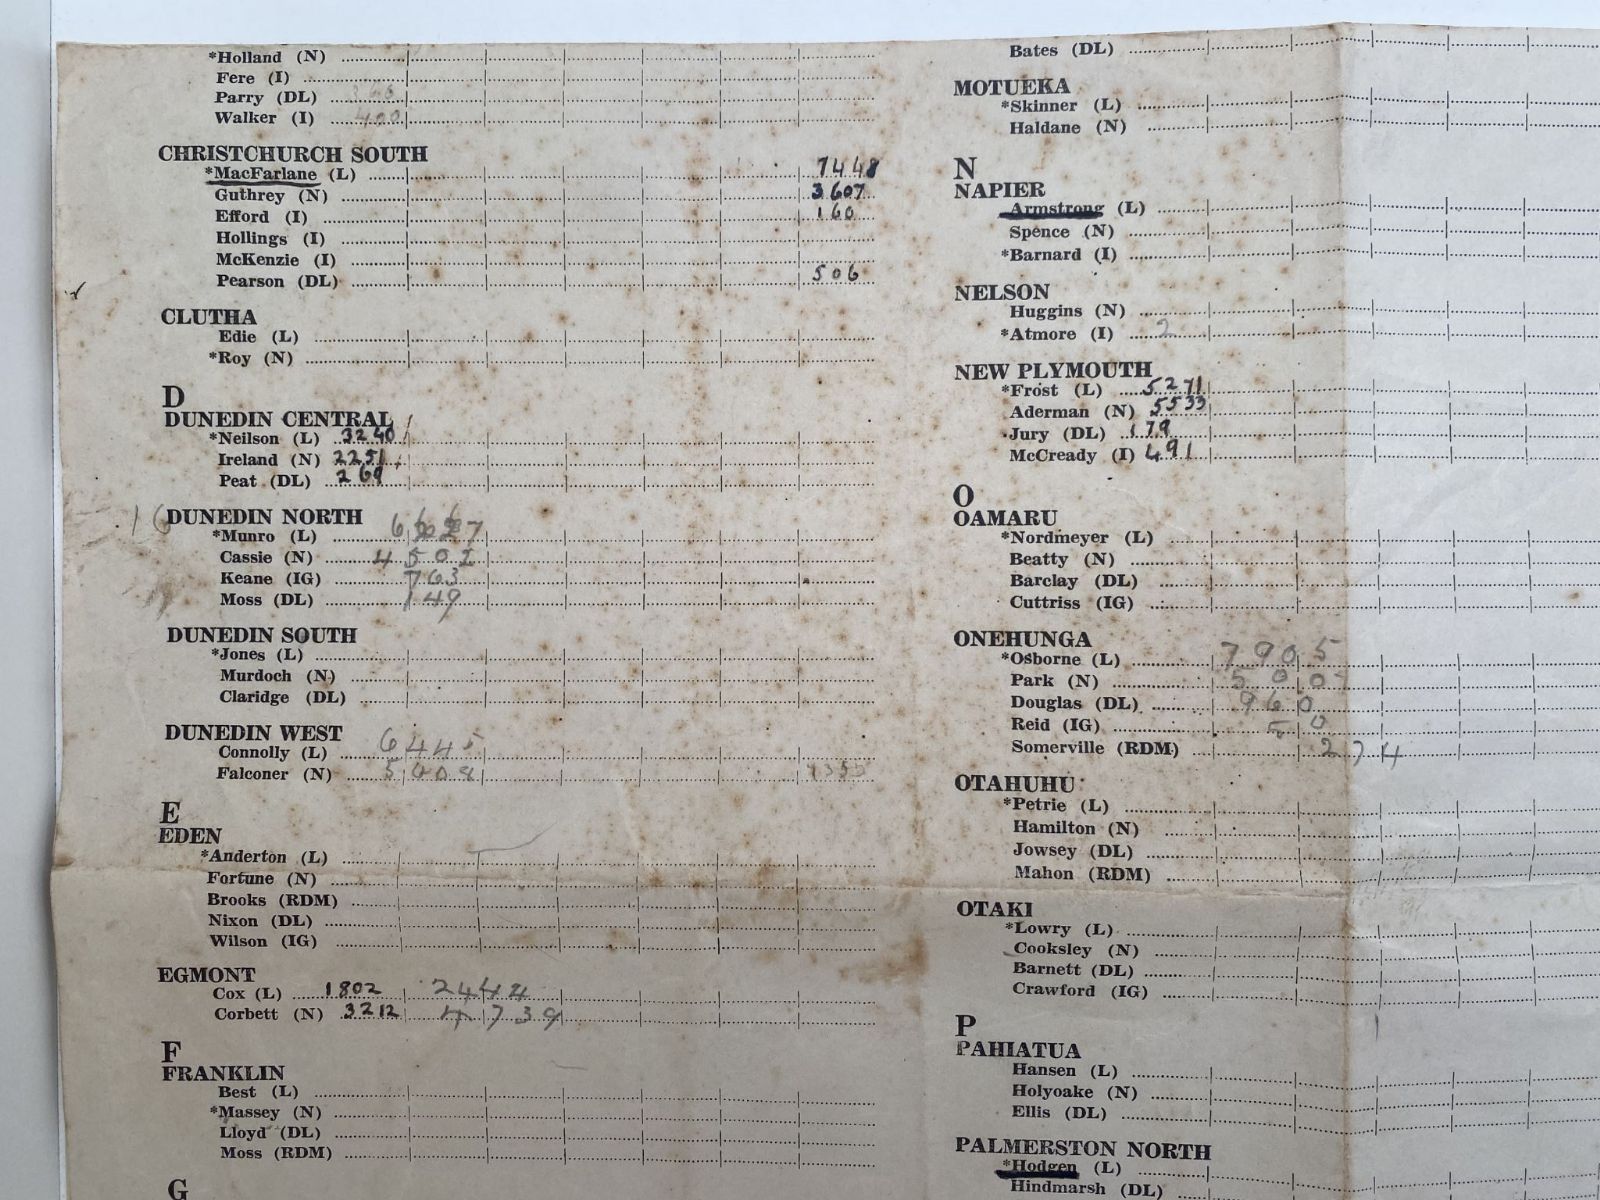 *Holland (N)
Fere (I)
Parry (DL)
Walker (I) 400
CHRISTCHURCH SOUTH
*MacFarlane (L) 7448
Guthrey (N) 3607
Efford (I) 160
Hollings (I)
McKenzie (I)
Pearson (DL) 506
CLUTHA
Edie (L)
*Roy (N)
D
DUNEDIN CENTRAL
*Neilson (L) 3240
Ireland (N) 2251
Peat (DL) 269
16 DUNEDIN NORTH
*Munro (L)
Cassie (N) 4502
Keane (IG) 763
Moss (DL) 149
DUNEDIN SOUTH
*Jones (L)
Murdoch (N)
Claridge (DL)
DUNEDIN WEST
Connolly (L) 6445
Falconer (N)
E
EDEN
*Anderton (L)
Fortune (N)
Brooks (RDM)
Nixon (DL)
Wilson (IG)
EGMONT
Cox (L) 1802 2444
Corbett (N) 3212 4739
F
FRANKLIN
Best (L)
*Massey (N)
Lloyd (DL)
Moss (RDM)
G
Bates (DL)
MOTUEKA
*Skinner (L)
Haldane (N)
N
NAPIER
Armstrong (L)
Spence (N)
*Barnard (I)
NELSON
Huggins (N)
*Atmore (I) 2
NEW PLYMOUTH
*Frost (L) 5271
Aderman (N) 5533
Jury (DL) 179
McCready (I) 491
O
OAMARU
*Nordmeyer (L)
Beatty (N)
Barclay (DL)
Cuttriss (IG)
ONEHUNGA
*Osborne (L) 7905
Park (N)
Douglas (DL) 960
Reid (IG)
Somerville (RDM) 274
OTAHUHU
*Petrie (L)
Hamilton (N)
Jowsey (DL)
Mahon (RDM)
OTAKI
*Lowry (L)
Cooksley (N)
Barnett (DL)
Crawford (IG)
P
PAHIATUA
Hansen (L)
Holyoake (N)
Ellis (DL)
PALMERSTON NORTH
*Hodgen (L)
Hindmarsh (DL)